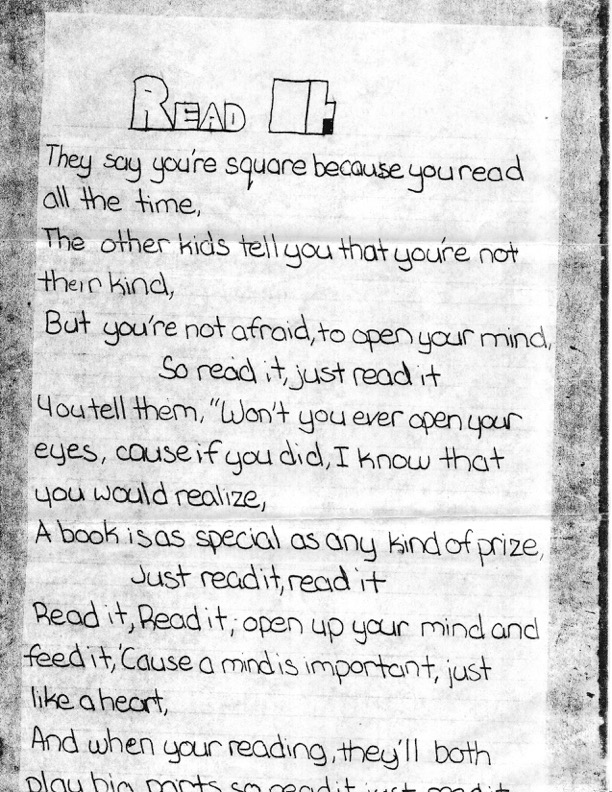 READ it
They say you're square because you read
all the time,
The other kids tell you that you're not
their kind,
But you're not afraid, to open your mind,
So read it, just read it
You tell them, "Won't you ever open your
eyes, cause if you did, I know that
you would realize,
A book is as special as any kind of prize,
Just read it, read it
Read it, Read it, open up your mind and
feed it, 'Cause a mind is important, just
like a heart,
And when your reading, they'll both
play big parts so read it just read it